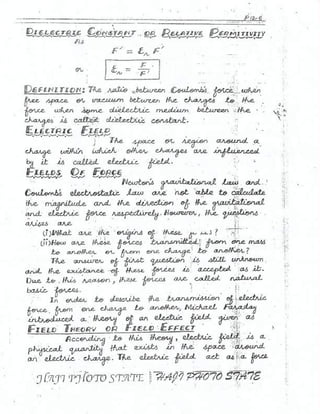 DIELECTRIC CONSTANT OR RELATIVE PERMITIVITY
F' = εr F'
or
εr = F / F'
DEFINITION: The ratio between Coulomb's force when
free space or vacuum between the charges to the
force when some dielectric medium between the
charges is called dielectric constant.
ELECTRIC FIELD
The space or region around a
charge within which other charges are influenced
by it is called electric field.
FIELDS OF FORCE
Newton's gravitational law and
Coulomb's electrostatic law are not able to calculate
the magnitude and the direction of the gravitational
and electric force respectively. However, the questions
arises are
(i) What are the origins of these forces?
(ii) How are these forces transmitted from one mass
to another or from one charge to another?
The answer of first question is still unknown
and the existance of these forces is accepted as it.
Due to this reason, these forces are called natural
basic forces.
In order to describe the transmission of electric
force from one charge to another, Michael Faraday
introduced a theory of an electric field given as
FIELD THEORY OR FIELD EFFECT
According to this theory, electric field is a
physical quantity that exists in the space around
an electric charge. The electric field act as a force
HAJI PHOTO STATE HAJI PHOTO STATE